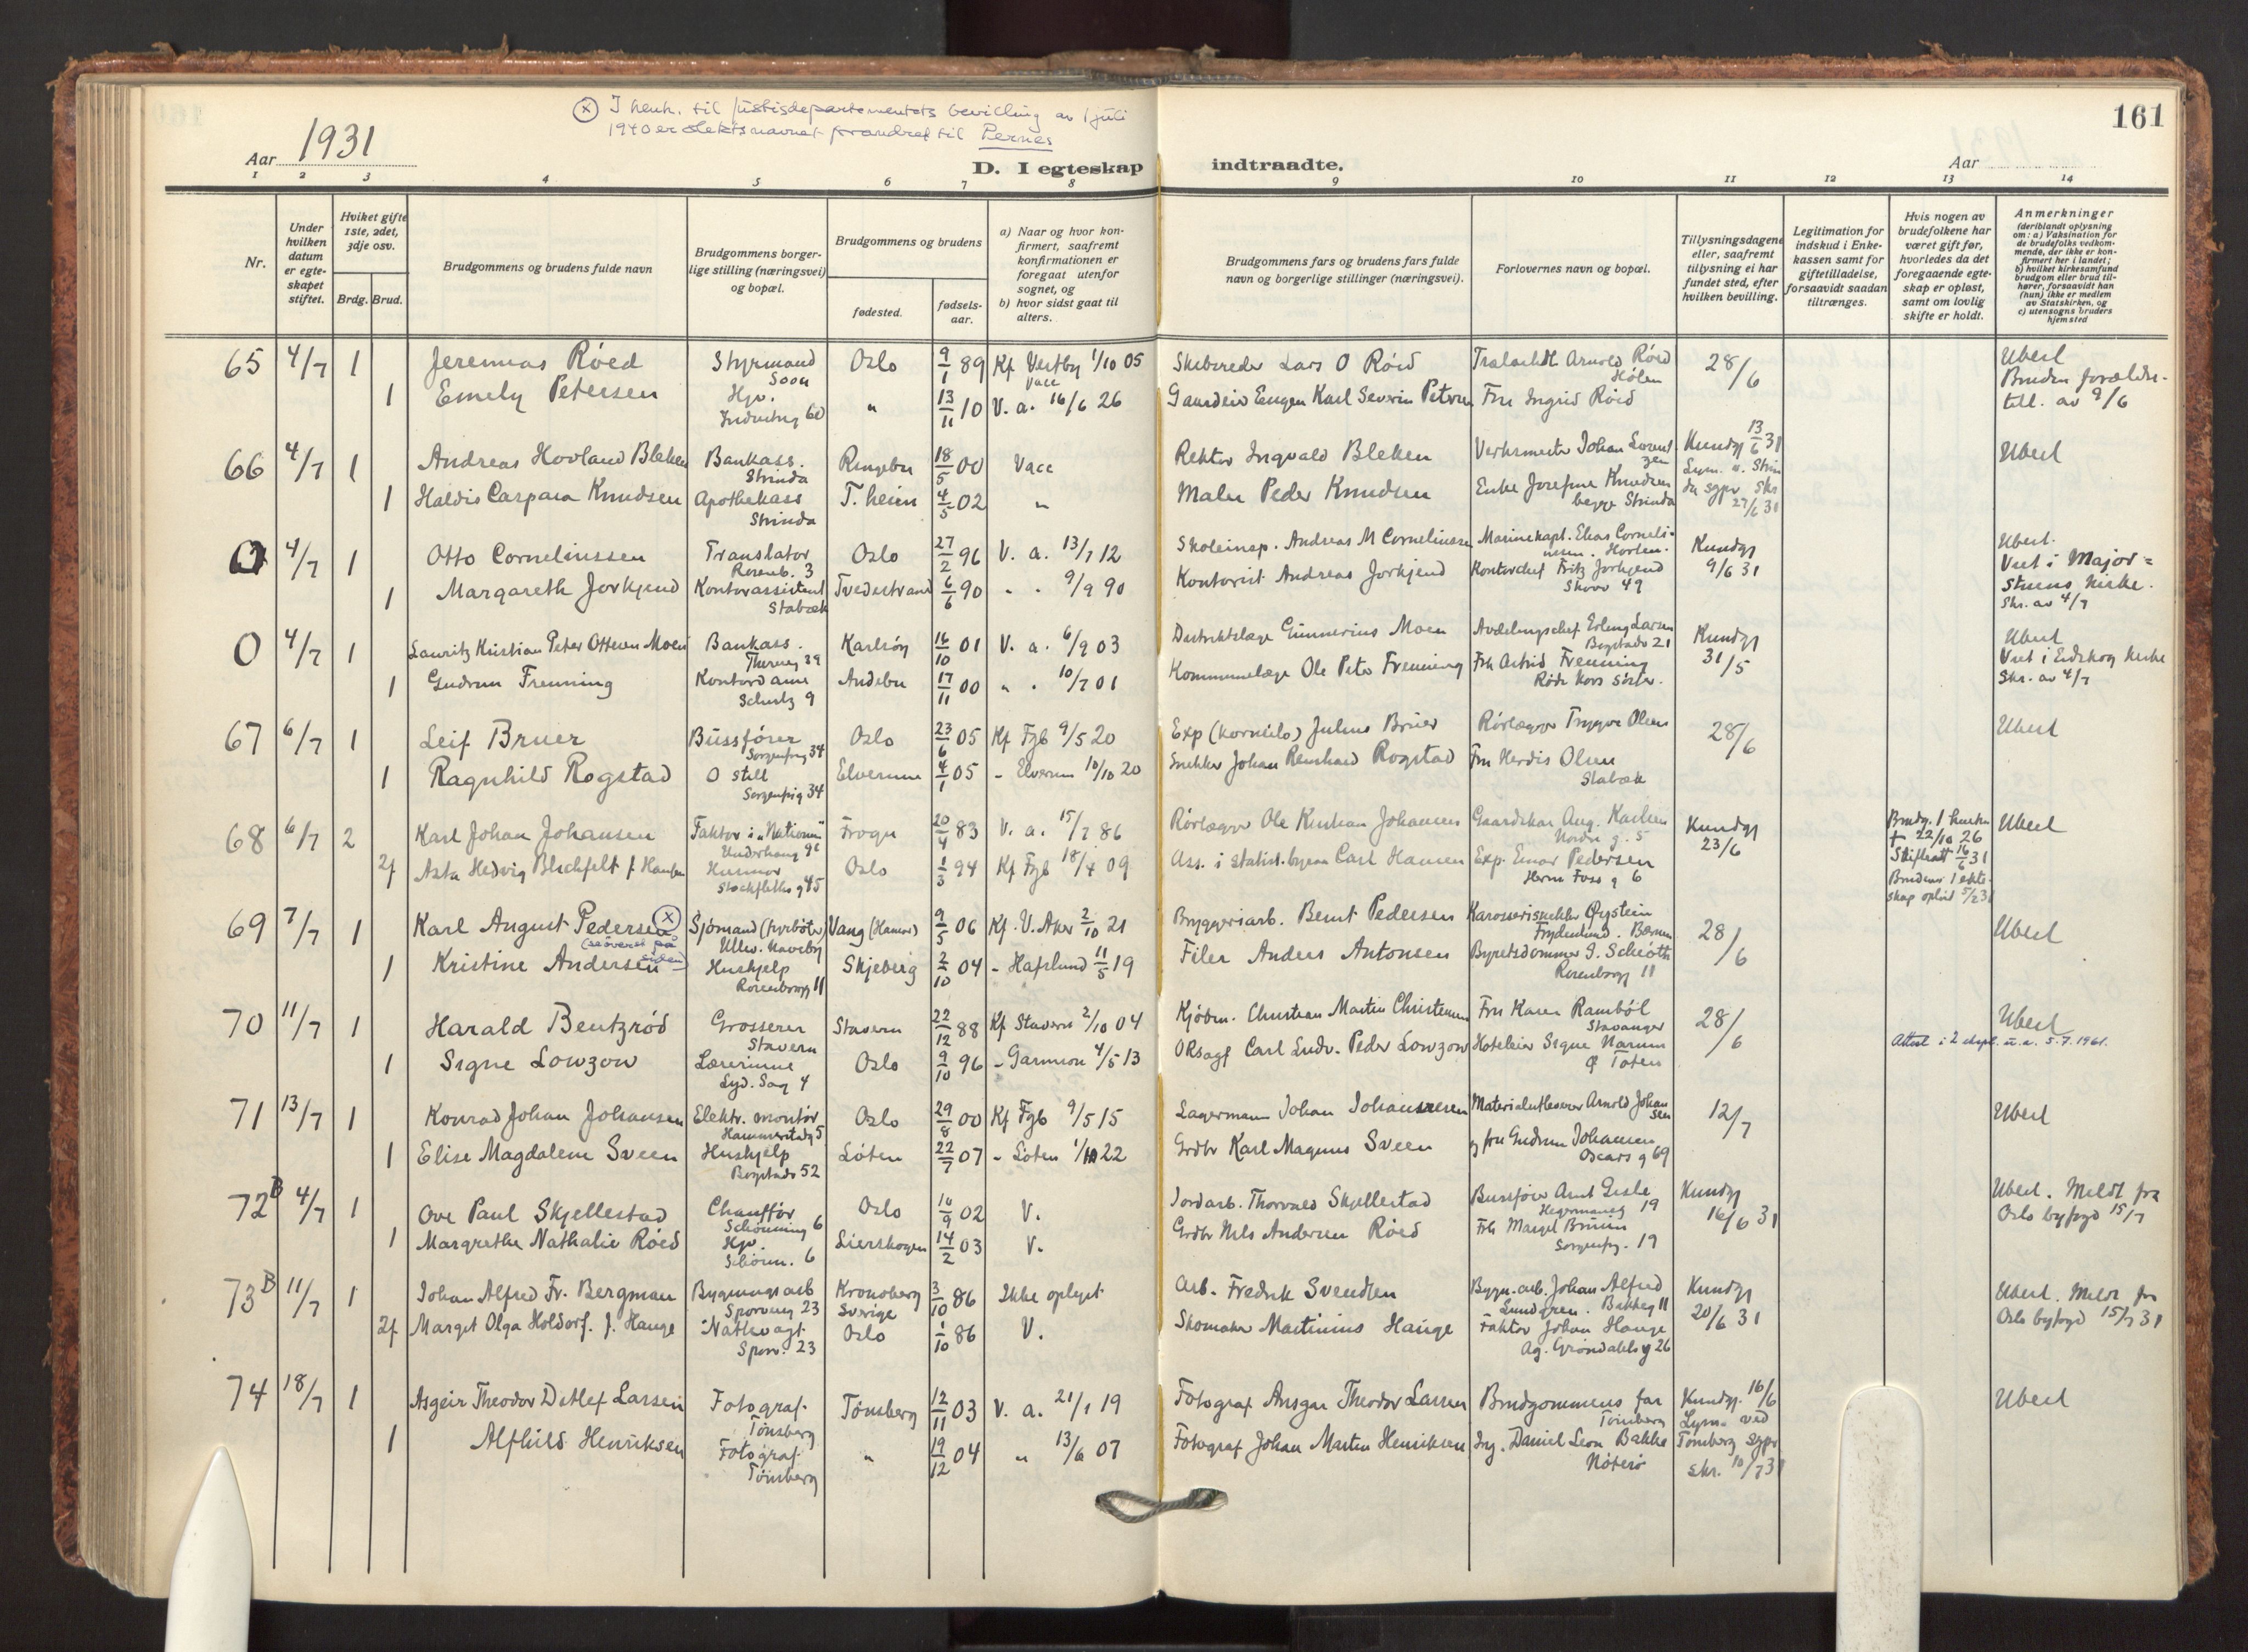 161
(x) I henh. til Justisdepartementets bevilling av 1 juli
1940 er slektsnavnet forandret til Pernes
Aar 1931
D. I egteskap indtraadte.
Aar
1 2 3 4 5 6 7 8 9 10 11 12 13 14
Nr.
Under hvilken datum er egteskapet stiftet.
Hviket gifte 1ste, 2det, 3dje osv.
Brdg. Brud.
Brudgommens og brudens fulde navn
Brudgommens borgerlige stilling (næringsvei) og bopæl.
Brudgommens og brudens
fødested. fødselsaar.
a) Naar og hvor konfirmert, saafremt konfirmationen er foregaat utenfor sognet, og
b) hvor sidst gaat til alters.
Brudgommens fars og brudens fars fulde navn og borgerlige stillinger (næringsvei).
Forlovernes navn og bopæl.
Tillysningsdagene eller, saafremt tillysning ei har fundet sted, efter hvilken bevilling.
Legitimation for indskud i Enkekassen samt for giftetilladelse, forsaavidt saadan tiltrænges.
Hvis nogen av brudefolkene har været gift før, hvorledes da det foregaaende egteskap er opløst, samt om lovlig skifte er holdt.
Anmerkninger (deriblandt oplysning om: a) Vaksination for de brudefolks vedkommende, der ikke er konfirmert her i landet; b) hvilket kirkesamfund brudgom eller brud tilhører, forsaavidt han (hun) ikke er medlem av Statskirken, og c) utensogns bruders hjemsted
65 4/7 1 Jeremias Röed Styrmand Soon Oslo 9/1 89 Kf Vestby 1/10 05 Skibsreder Lars O Röed Arnold Röed Hölen 28/6 Uberl
1 Emely Petersen Hjv. Industrig 60 " 13/11 10 V. a. 16/6 26 Gaardeier Eugen Karl Severin Petersen Fru Ingrid Röed Bruden forældretill. av 9/6
66 4/7 1 Andreas Hovland Bleken Bankass. Strinda Ringebu 18/5 00 Vacc Rektor Ingvald Bleken Verksmester Johan Lorentzen Kundgj 13/6 31 Uberl
1 Haldis Caspara Knudsen Apothekass Strinda T. heim 4/5 02 " Maler Peder Knudsen Enke Josefine Knudsen begge Strinda Lysn. v. Strinda sgpr skr 27/6 31
0 4/7 1 Otto Corneliussen Translator Rosenb. 3 Oslo 27/2 96 V. a. 13/7 12 Skoleinsp. Andreas M Corneliussen Marinekapt. Elias Corneliussen. Horten. Kundgj 9/6 31 Uberl.
1 Margareth Jorkjend Kontorassistent Stabæk Tvedestrand 6/6 90 " " 9/9 90 Kontorist Andreas Jorkjend Kontorchef Fritz Jorkjend Skovv 49 Viet i Majorstuens kirke. Skr. av 4/7
0 4/7 1 Lauritz Kristian Peter Ottesen Moen Bankass. Karlsöy 16/10 01 V. a. 6/9 03 Distriktslæge Gunnerius Moen Avdelingschef Erling Larsen Bogstadv 21 Kundgj 31/5 Uberl
1 Gudrun Frenning Kontordame Schultz 9 Andebu 17/11 00 " " 10/7 01 Kommunelæge Ole Peter Frenning Frk Astrid Frenning Röde Kors söster. Viet i Eidskog kirke Skr. av 4/7
67 6/7 1 Leif Bruer Bussförer Sorgenfrig 34 Oslo 23/6 05 Kf Fgb 9/5 20 Exp Julius Bruer Rörlægger Trygve Olsen 28/6 Uberl
1 Ragnhild Rogstad O still Sorgenfrig 34 Elverum 4/1 05 - Elverum 10/10 20 Snekker Johan Reinhard Rogstad Fru Herdis Olsen Stabæk
68 6/7 2 Karl Johan Johansen Faktor i "Nationen" Frogn 20/4 83 V. a. 15/7 86 Rörlægger Ole Kristian Johansen Gaardskar Aug. Karlsen Nordre g. 5 Kundgj 23/6 Uberl
2f Asta Hedvig Blichfelt f Hansen Husmor Stockfleths g 45 Oslo 1/3 94 Kf Fgb 18/4 09 Ass. i statist. byraa Carl Hansen Exp. Einar Pedersen Herm Foss g 6
Brudg. 1 hustru + 22/10 26 Skifteatt 16/6 31 Brudens 1 ekteskap oplöst 5/2 31
69 7/7 1 Karl August Pedersen (x) (se överst på siden) Sjömand (fyrböter) Ullev. Haveby Vang (Hamar) 9/5 06 Kf. V. Aker 2/10 21 Bryggeriarb. Bernt Pedersen Karosserisnekker Øystein Frydenlund. Bærum 28/6 Uberl
1 Kristine Andersen Hushjelp Rosenborgg 11 Skjeberg 2/10 04 - Hafslund 11/5 19 Filer Anders Antonsen Byretsdommer S. Schiöth Rosenborgg 11
70 11/7 1 Harald Bentzröd Grosserer Stavern Stavern 22/12 88 Kf Stavern 2/10 04 Kjöbm. Christian Martin Christensen Fru Karen Ramböl Stavanger 28/6 Uberl
1 Signe Lowzow Lærerinne Lyd. Sag 4 Oslo 9/10 96 - Garnison 4/5 13 ORsagf Carl Ludv. Peder Lowzow Hoteleier Signe Narum Ø Toten
Attest i 2 ekspl. u.a. 5.7.1961.
71 13/7 1 Konrad Johan Johansen Elektr. montör Hammerstadg 5 Oslo 29/8 00 Kf Fgb 9/5 15 Lagermann Johan Johannesen Materialutleverer Arnold Johansen 12/7 Uberl
1 Elise Magdalene Sveen Hushjelp Bogstadv 52 Löten 22/7 07 - Löten 1/10 22 Grdbr Karl Magnus Sveen og fru Gudrun Johansen Oscars g 69
72 B 4/7 1 Ove Paul Skjellestad Chaufför Schönning 6 Oslo 16/9 02 V. Jordarb. Thorvald Skjellestad Bussförer Arnt Gisle Hegermansg 19 Kundgj 16/6 31 Uberl. Meldt fra Oslo byfogd 15/7
1 Margrethe Nathalie Röed Hjv. Schönn. 6 Lierskogen 14/2 03 V. Grdbr Nils Andersen Röed Frk Margit Bruun Sorgenfrig. 19
73 B 11/7 1 Johan Alfred Fr. Bergman Bygningsarb Sporveisg 23 Kronoberg Sverige 3/10 86 Ikke oplyst Arb. Fredrik Svendsen Bygn. arb. Johan Alfred Lundgren. Bakkeg 11 Kundgj 20/6 31 Uberl. Meldt fra Oslo byfogd 15/7 31
2f Margit Olga Holdorf. f. Hauge Nattevagt Sporv. 23 Oslo 1/10 86 V. Skomaker Martinius Hauge Faktor Johan Hauge Ag. Gröndahls g 26
74 18/7 1 Asgeir Theodor Detlef Larsen Fotograf. Tönsberg Tönsberg 12/11 03 V. a. 21/1 19 Fotograf Ansgar Theodor Larsen Brudgommens far Tönsberg Kundgj. 16/6 Uberl
1 Alfhild Henriksen Fotograf Tönsberg " 19/12 04 " 13/6 07 Fotograf Johan Martin Henriksen Ing. Daniel Leon Bakke Nöterö Lysn. ved Tönsberg sgpr skr. 10/7 31